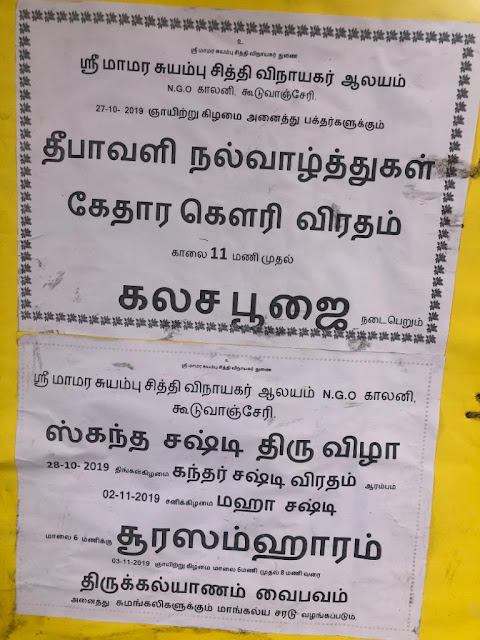 உ
ஸ்ரீ மாமர சுயம்பு சித்தி விநாயகர் துணை
ஸ்ரீ மாமர சுயம்பு சித்தி விநாயகர் ஆலயம்
N.G.O காலனி, கூடுவாஞ்சேரி.
27-10- 2019 ஞாயிற்று கிழமை அனைத்து பக்தர்களுக்கும்
தீபாவளி நல்வாழ்த்துகள்
கேதார கௌரி விரதம்
காலை 11 மணி முதல்
கலச பூஜை நடைபெறும்
உ
ஸ்ரீ மாமர சுயம்பு சித்தி விநாயகர் துணை
ஸ்ரீ மாமர சுயம்பு சித்தி விநாயகர் ஆலயம் N.G.O காலனி,
கூடுவாஞ்சேரி.
ஸ்கந்த சஷ்டி திரு விழா
28-10- 2019 திங்கள்கிழமை கந்தர் சஷ்டி விரதம் ஆரம்பம்
02-11-2019 சனிக்கிழமை மஹா சஷ்டி
மாலை 6 மணிக்கு சூரஸம்ஹாரம்
03-11-2019 ஞாயிற்று கிழமை மாலை 6மணி முதல் 8 மணி வரை
திருக்கல்யாணம் வைபவம்
அனைத்து சுமங்கலிகளுக்கும் மாங்கல்ய சரடு வழங்கப்படும்.